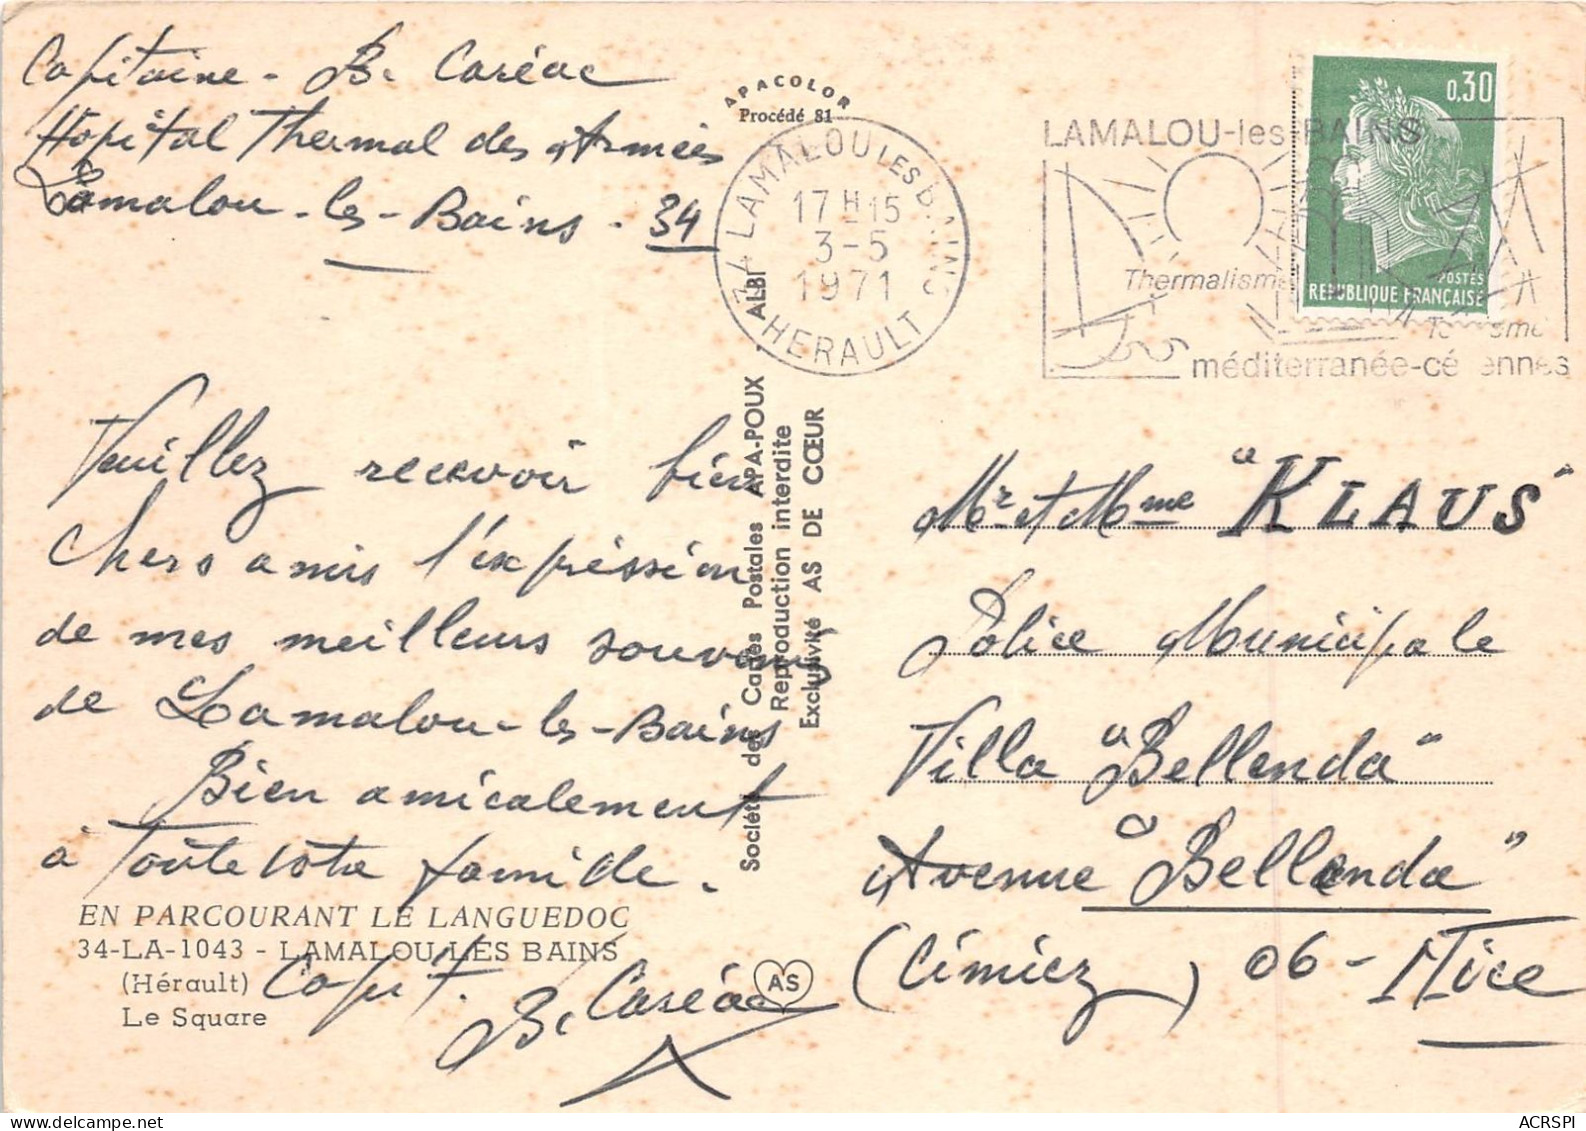 Capitaine - B. Caréac
Hôpital Thermal des Armées
Lamalou-les-Bains - 34
APACOLOR
Procédé 81
34 LAMALOU LES BAINS
17H15
3-5
1971
HERAULT
LAMALOU-les-BAINS
Thermalisme
Tourisme
méditerranée-cévennes
0,30
POSTES
REPUBLIQUE FRANÇAISE
Veuillez recevoir bien
chers amis l'expréssion
de mes meilleurs souvenirs
de Lamalou-les-Bains
Bien amicalement
à toute votre famille.
Capit. B. Caréac
EN PARCOURANT LE LANGUEDOC
34-LA-1043 - LAMALOU-LES BAINS
(Hérault)
Le Square
AS
Société des Cartes Postales APA-POUX - ALBI
Reproduction interdite
Exclusivité AS DE CŒUR
Mr et Mme "KLAUS"
Police Municipale
Villa "Bellenda"
Avenue "Bellenda"
(Cimiez) 06 - Nice
ACRSPI